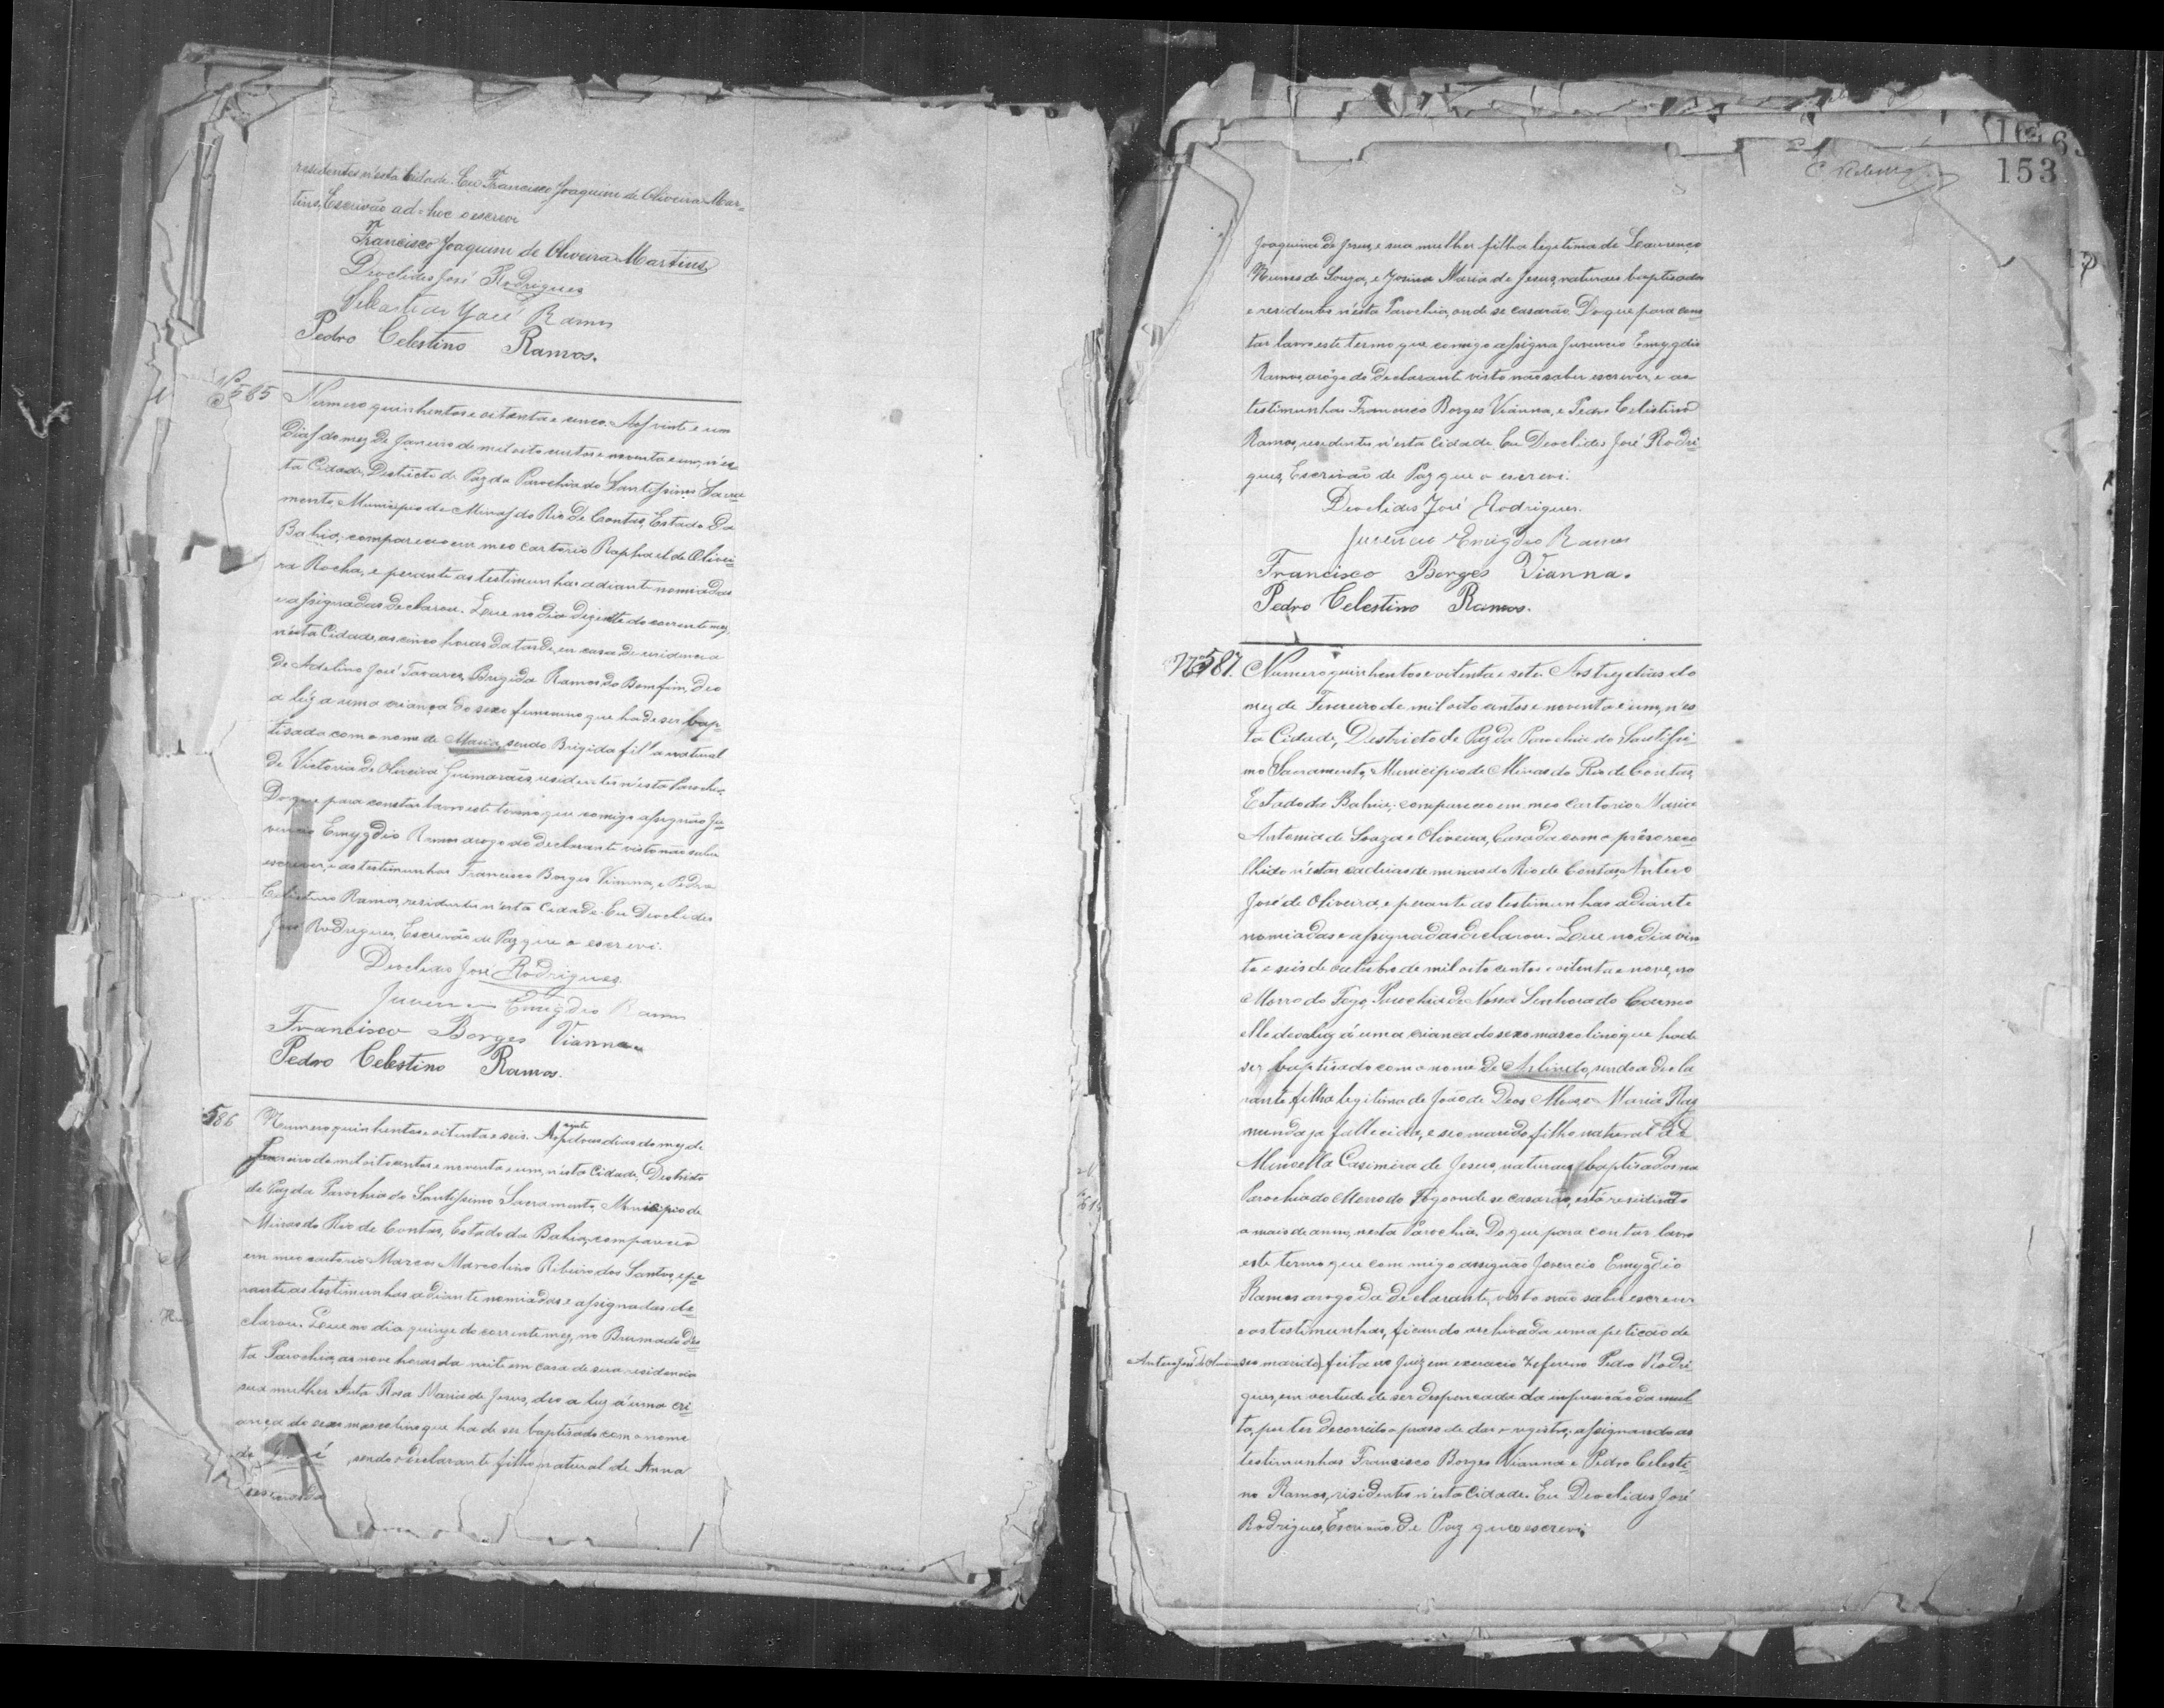 residentes n'esta Cidade. Eu Francisco Joaquim de Oliveira Mar=
tins, Escrivão ad=hoc o escrevi
Francisco Joaquim de Oliveira Martins
Deoclides José Rodrigues
José Ramos
Pedro Celestino Ramos.
Nº 585 Numero quinhentos e oitenta e cinco. Aos vinte e um
dias do mez de Janeiro de mil oito centos e noventa e um, n'es=
ta Cidade, Districto de Paz da Parochia do Santissimo Sacra=
mento, Municipio de Minas do Rio de Contas, Estado da
Bahia, compareceo em meo cartorio Raphael de Olivei=
ra Rocha, e perante as testimunhas adiante nomiadas
e assignadas declarou. Que no dia dezesette do corrente mez,
n'esta Cidade, as cinco horas da tarde, em casa de residencia
de Adelino José Tavares, Brigida Ramos do Bomfim, deo
a luz a uma criança do sexo femenino que ha de ser bap=
tisada com o nome de Maria, sendo Brigida filha natural
de Victoria de Oliveira Guimarães, residentes n'esta Parochia.
Do que para constar lavro este termo que comigo assignão Ju=
vencio Emygdio Ramos arogo do declarante visto não saber
escrever, e as testimunhas Francisco Borges Vianna, e Pedro
Celestino Ramos, residentes n'esta Cidade. Eu Deoclides
José Rodrigues, Escrivão de Paz que o escrevi.
Deoclides José Rodrigues.
Juvencio Emigdio Ramos
Francisco Borges Vianna
Pedro Celestino Ramos.
586 Numero quinhentos e oitenta e seis. Aos vinte e dous dias do mez de
Janeiro de mil oito centos e noventa e um, n'esta Cidade, Destricto
de Paz da Parochia do Santissimo Sacramento, Municipio de
Minas do Rio de Contas, Estado da Bahia, compareceo
em meo cartorio Marcos Marcolino Ribeiro dos Santos, e pe=
rante as testimunhas adiante nomiadas e assignadas de=
clarou. Que no dia quinze do corrente mez, no Brumado des=
ta Parochia, as nove horas da noite em casa de sua residencia
sua mulher Anta Rosa Maria de Jesus, deo a luz á uma cri=
ança do sexo mascolino que ha de ser baptisado com o nome
de José, sendo o declarante filho natural de Anna
153
Joaquina de Jesus, e sua mulher filha legitima de Lourenço
Nunes de Souza, e Josina Maria de Jesus, naturaes baptisados
e residentes n'esta Parochia, onde se casarão. Do que para cons=
tar lavro este termo que comigo assigna Juvencio Emygdio
Ramos, arogo do declarante visto não saber escrever, e as
testimunhas Francisco Borges Vianna, e Pedro Celestino
Ramos, residentes n'esta Cidade. Eu Deoclides José Rodri=
gues, Escrivão de Paz que o escrevi.
Deoclides José Rodrigues.
Juvencio Emigdio Ramos
Francisco Borges Vianna.
Pedro Celestino Ramos.
Nº 587. Numero quinhentos e oitenta e sete. Aos trez dias do
mez de Fevereiro de mil oito centos e noventa e um, n'es
ta Cidade, Destricto de Paz da Parochia do Santissi=
mo Sacramento, Municipio de Minas do Rio de Contas,
Estado da Bahia, compareceo em meo Cartorio Maria
Antonia de Souza e Oliveira, Casada com o prêso reco=
lhido n'estas cadeias de minas do Rio de Contas, Antero
José de Oliveira, e perante as testimunhas adiante
nomiadas e assignadas declarou. Que no dia vin
te e seis de outubro de mil oito centos e oitenta e nove, no
Morro do Fogo, Parochia de Nossa Senhora do Carmo
ella deo a luz á uma criança do sexo mascolino que ha de
ser baptisado com o nome de Arlindo, sendo a decla
rante filha legitima de João de Deos e Maria Ray
munda ja fallecida, e seo marido filho natural de
Casimira de Jesus, naturaes, baptisados na
Parochia do Morro do Fogo onde se casarão, está residindo
a mais de anno, nesta Parochia. Do que para contar lavro
este termo que com migo assignão Jovencio Emygdio
Ramos arogo da declarante, visto não saber escrever
e as testimunhas, ficando archivada uma petição de
Antero José de Oliveira seo marido, feita ao Juiz em exercicio Zeferino Pedro Rodri
gues, em vertude de ser despençada da imposição da mul
ta, por ter decorrido o praso de dar o registro; assignando as
testimunhas Francisco Borges Vianna e Pedro Celesti=
no Ramos, risidentes n'esta Cidade. Eu Deoclides José
Rodrigues, Escrivão de Paz que o escrevi.